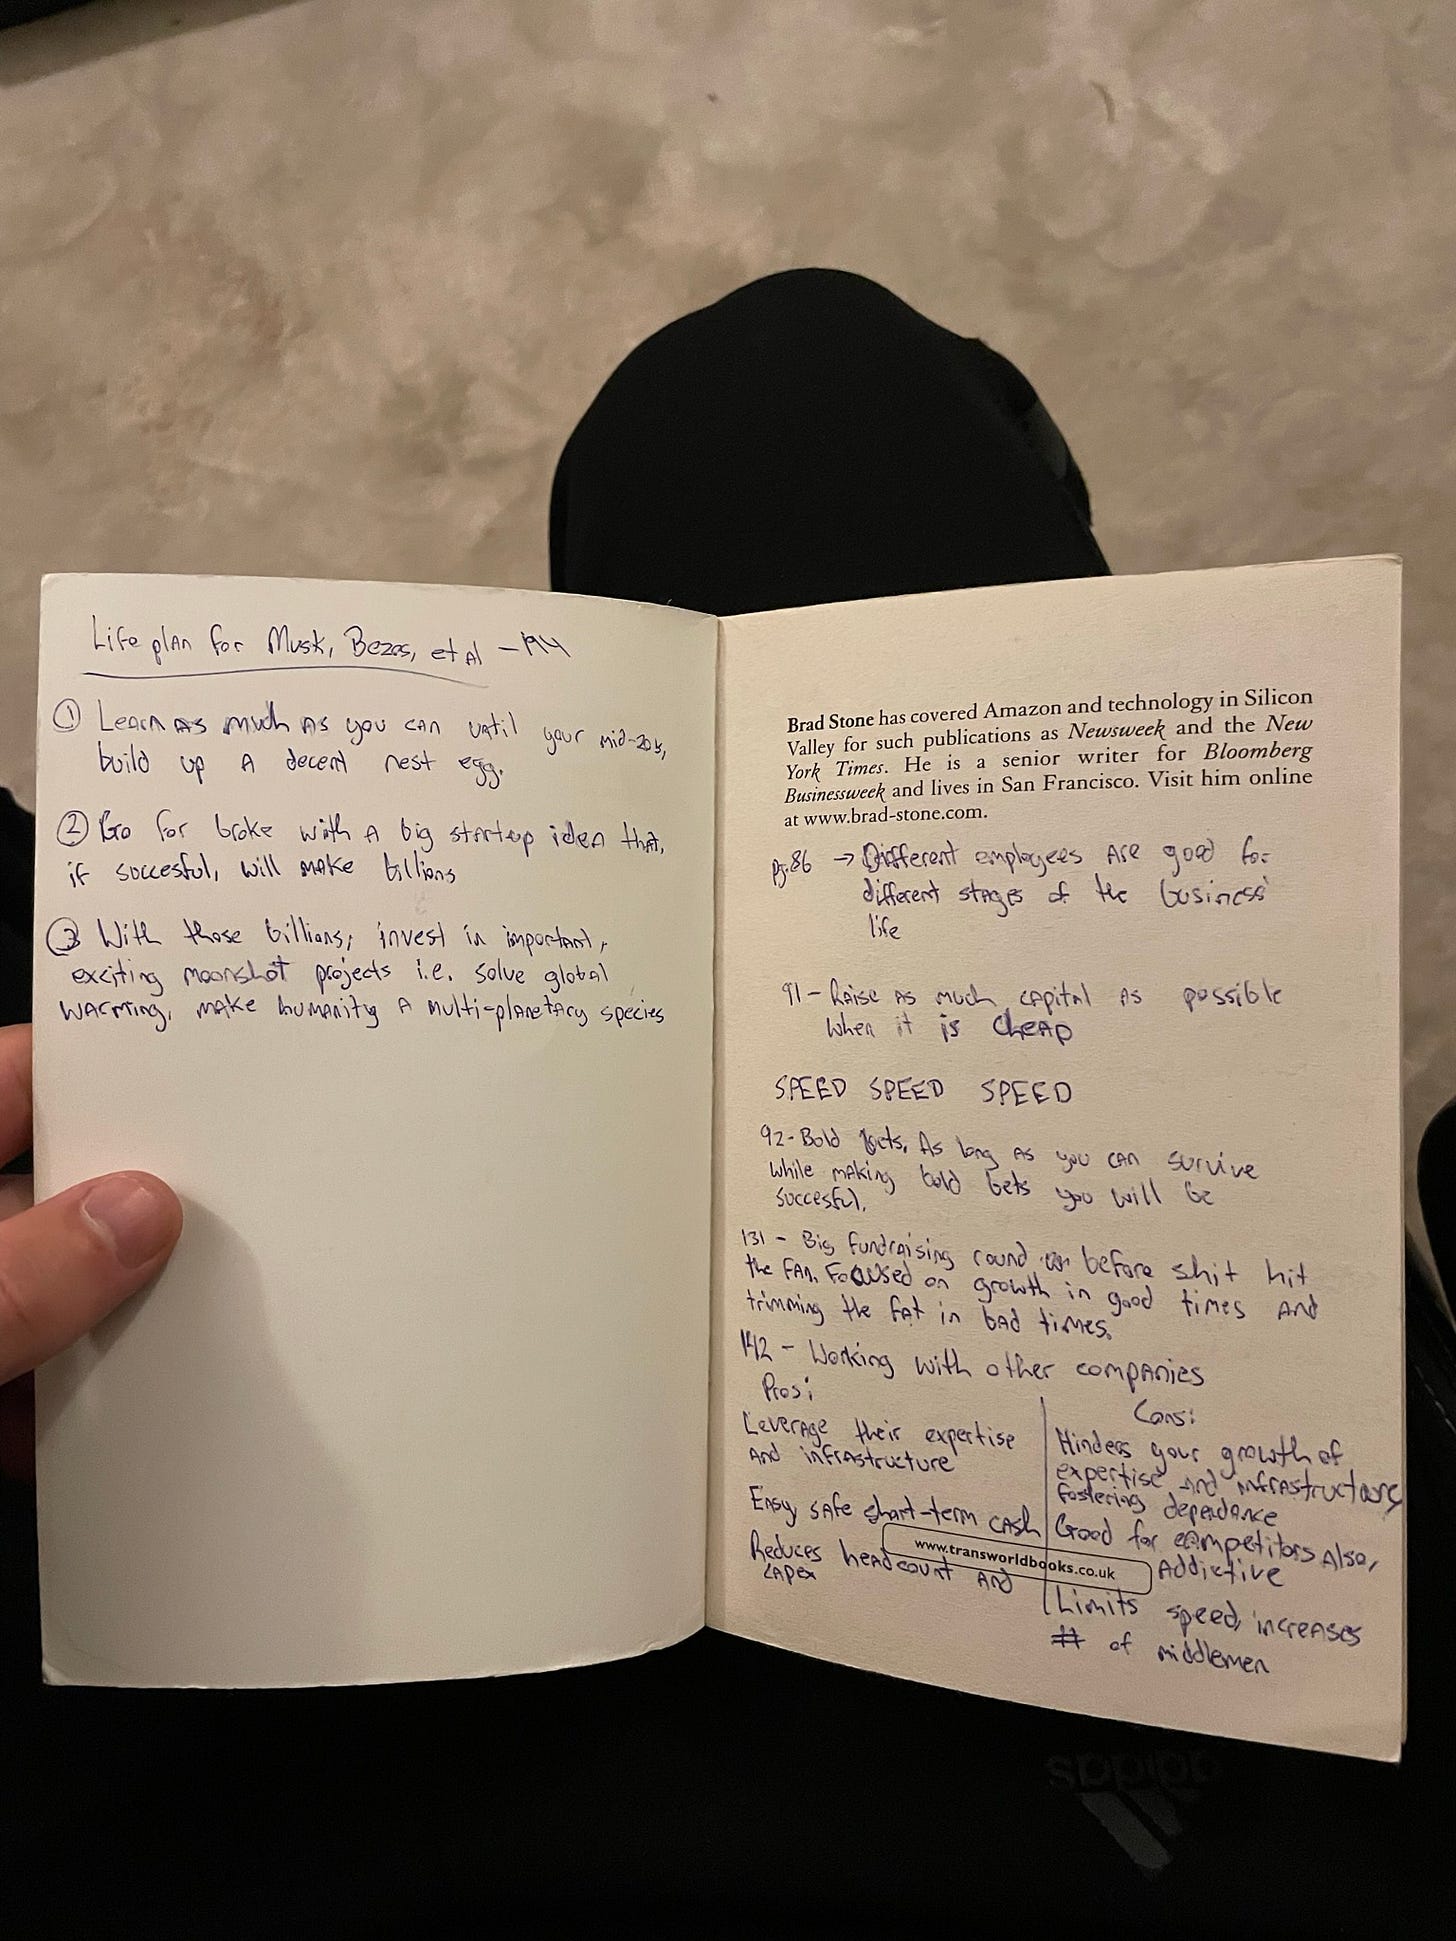 Life plan for Musk, Bezos, et al - 194
① Learn as much as you can until your mid-20s,
build up a decent nest egg.
② Go for broke with a big startup idea that,
if succesful, will make billions
③ With those billions, invest in important,
exciting moonshot projects i.e. solve global
warming, make humanity a multi-planetary species
Brad Stone has covered Amazon and technology in Silicon
Valley for such publications as Newsweek and the New
York Times. He is a senior writer for Bloomberg
Businessweek and lives in San Francisco. Visit him online
at www.brad-stone.com.
Pg.86 → Different employees are good for
different stages of the business'
life
91 - Raise as much capital as possible
when it is cheap
SPEED SPEED SPEED
92 - Bold bets. As long as you can survive
while making bold bets you will be
succesful.
131 - Big fundraising round before shit hit
the fan. Focused on growth in good times and
trimming the fat in bad times.
142 - Working with other companies
Pros:
Leverage their expertise
and infrastructure
Easy, safe short-term cash
Reduces headcount and
capex
Cons:
Hinders your growth of
expertise and infrastructure,
fostering dependance
Good for competitors also,
Addictive
Limits speed, increases
# of middlemen
www.transworldbooks.co.uk
adidas